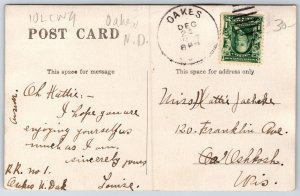 10LCW9
Oakes
N.D.
OAKES
DEC
POST CARD
This space for message
This space for address only
Oh Hattie:-
I hope you are
enjoying yourselfs as
much as I am.
sincerely yours
Louise.
R.R. no. 1.
Oakes N. Dak
Miss Hattie
120 Franklin Ave.
Oshkosh
Wis.